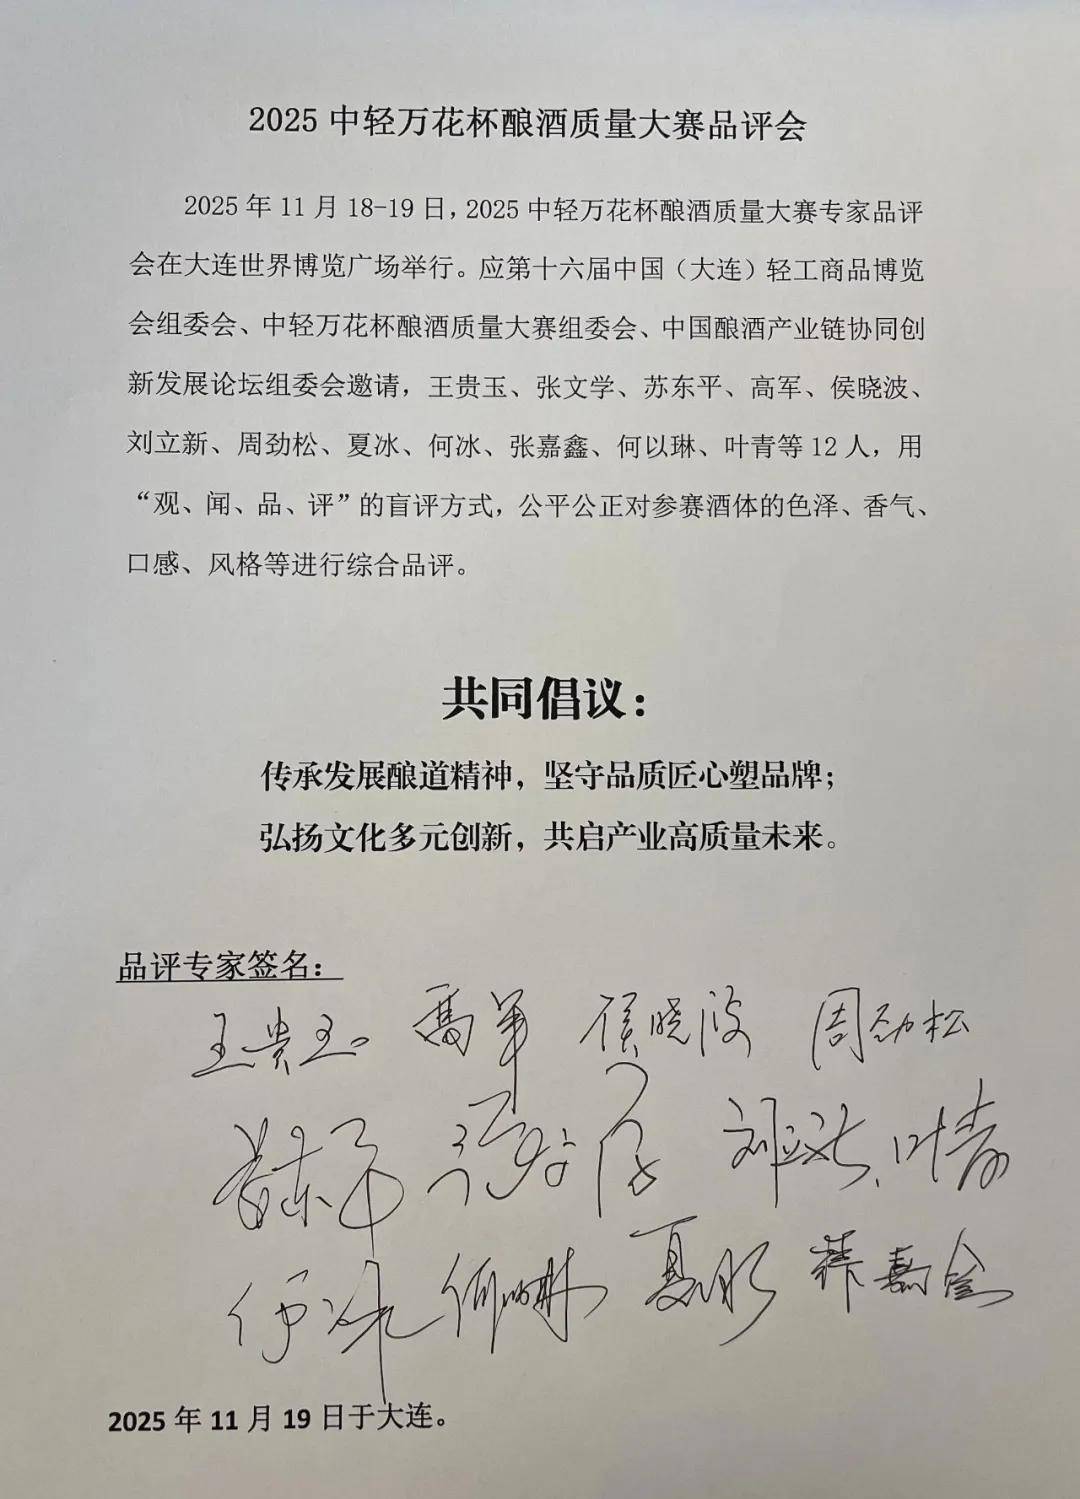 2025 中轻万花杯酿酒质量大赛品评会
2025 年 11 月 18-19 日，2025 中轻万花杯酿酒质量大赛专家品评
会在大连世界博览广场举行。应第十六届中国（大连）轻工商品博览
会组委会、中轻万花杯酿酒质量大赛组委会、中国酿酒产业链协同创
新发展论坛组委会邀请，王贵玉、张文学、苏东平、高军、侯晓波、
刘立新、周劲松、夏冰、何冰、张嘉鑫、何以琳、叶青等 12 人，用
“观、闻、品、评”的盲评方式，公平公正对参赛酒体的色泽、香气、
口感、风格等进行综合品评。
共同倡议：
传承发展酿道精神，坚守品质匠心塑品牌；
弘扬文化多元创新，共启产业高质量未来。
品评专家签名：
王贵玉 高军 侯晓波 周劲松
刘立新 叶青
夏冰
2025 年 11 月 19 日于大连。